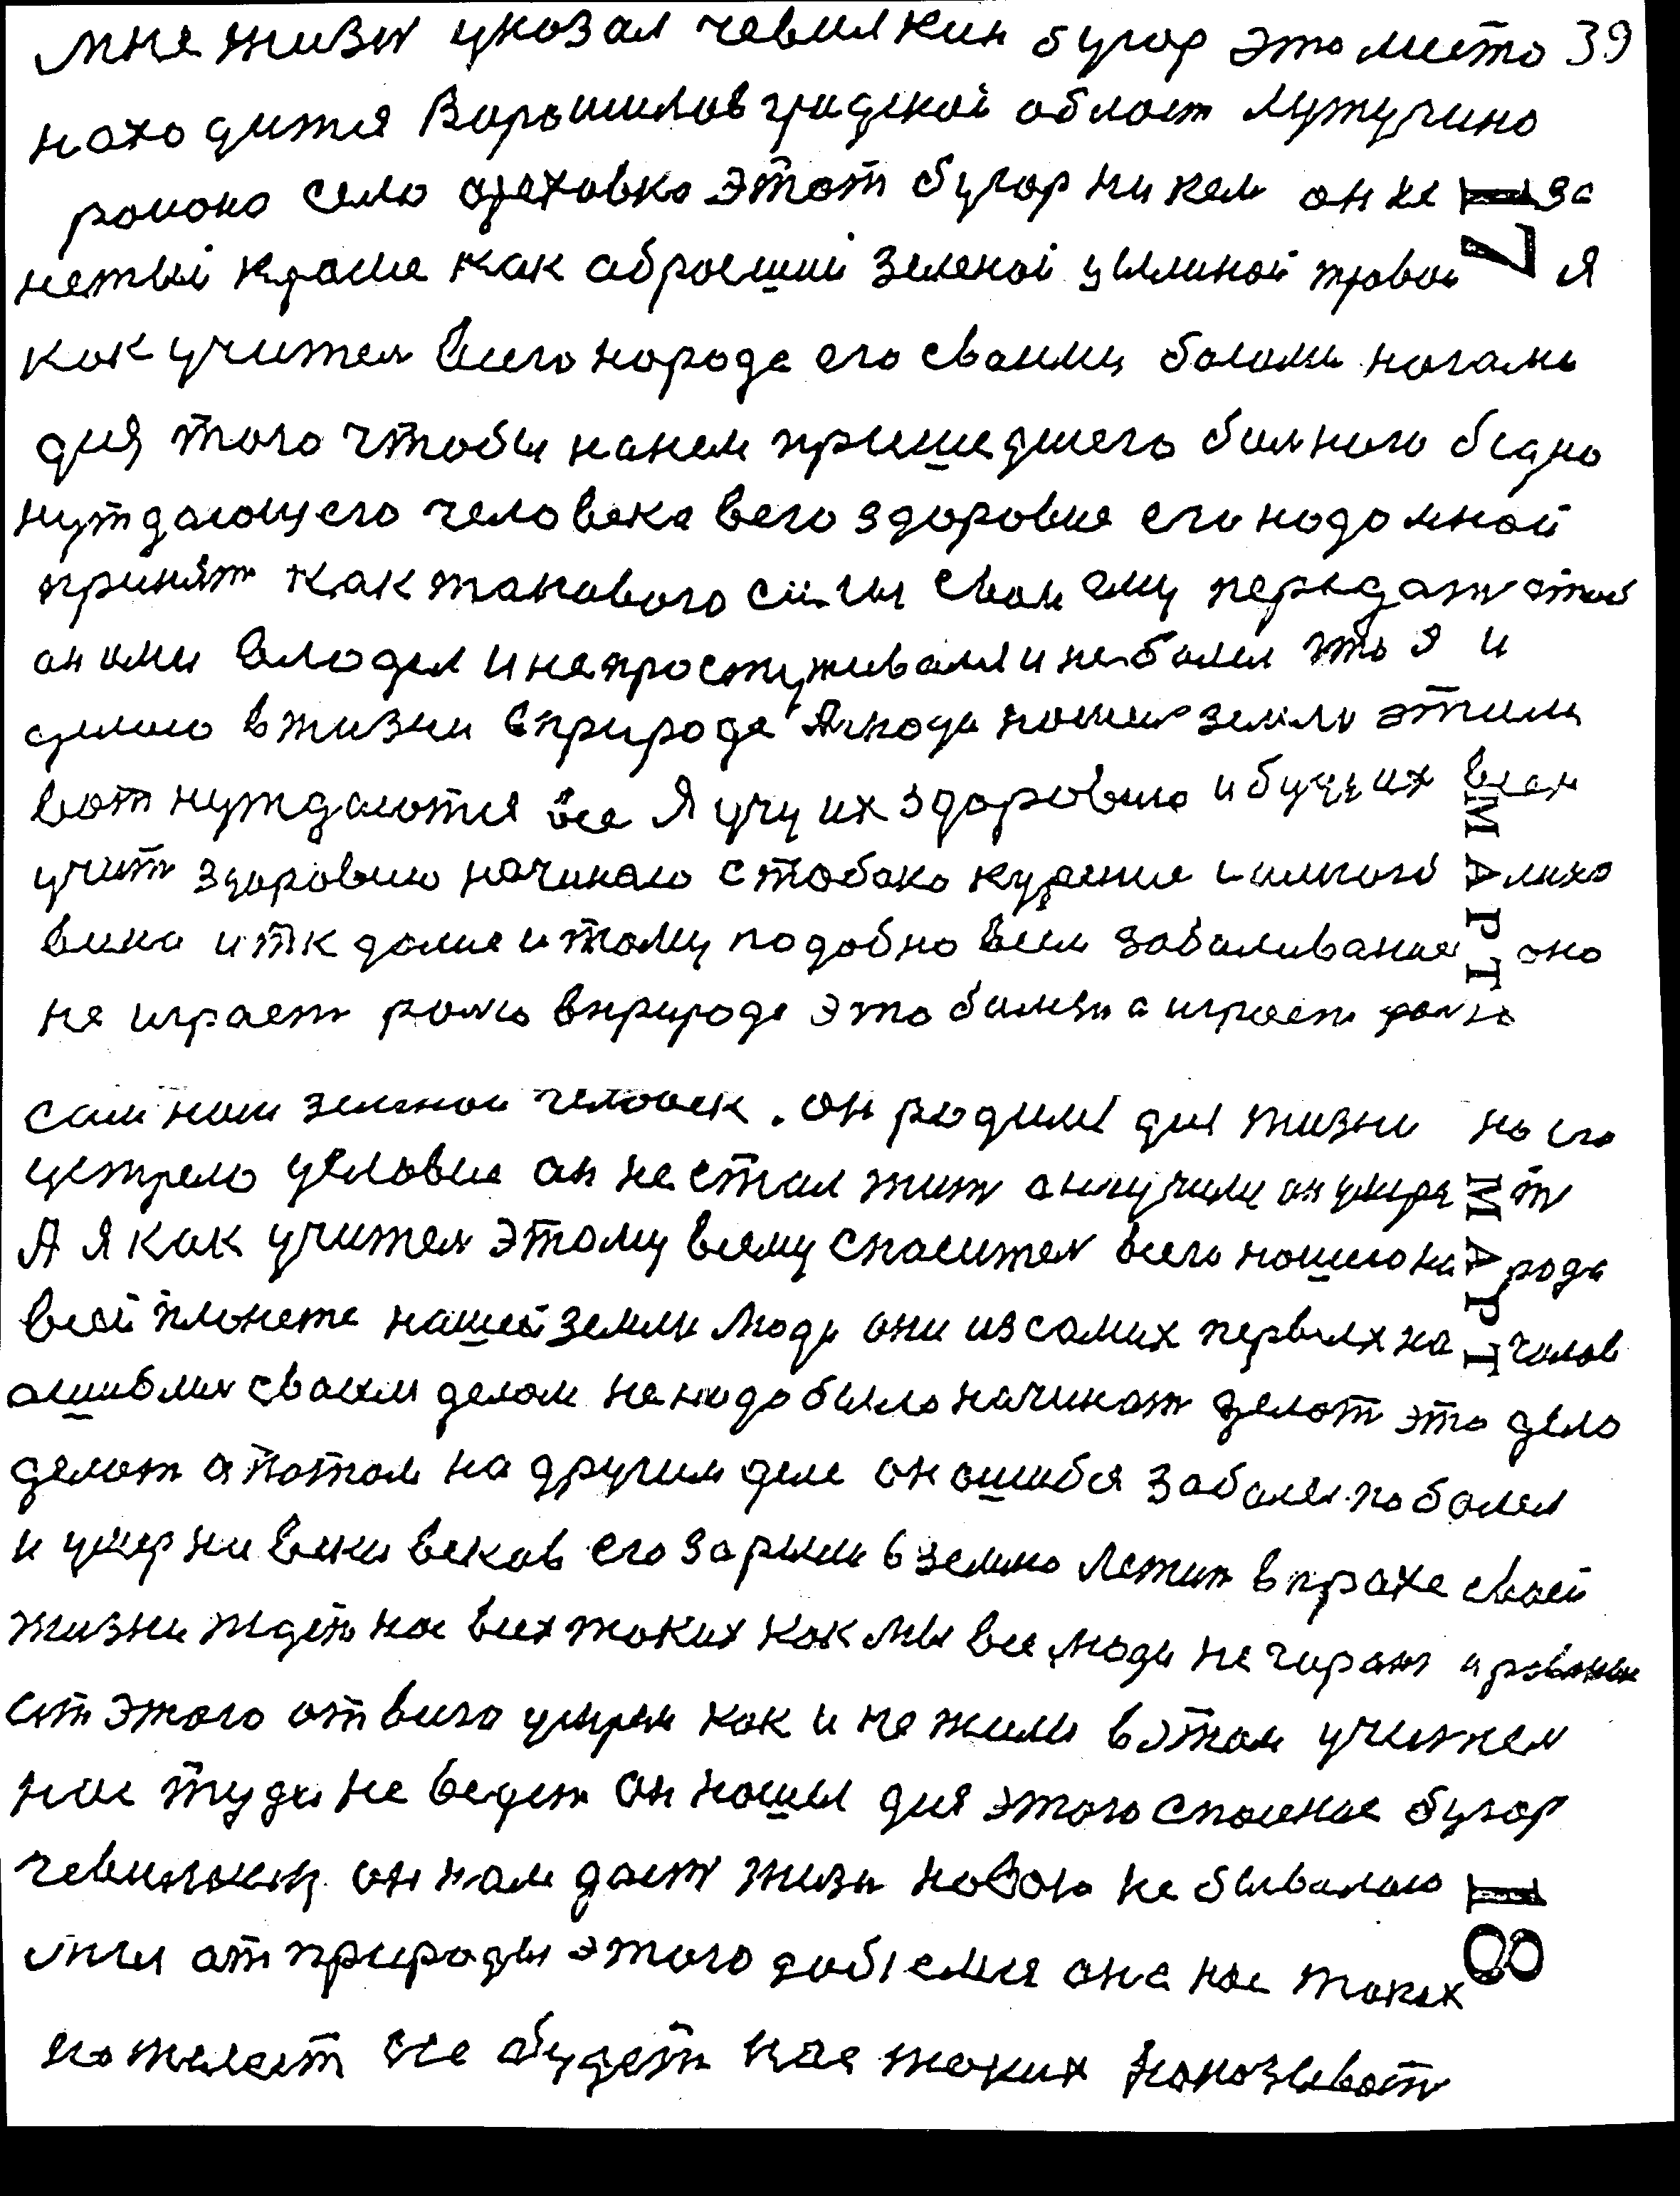 мне жизн указал чевилкин бугор это место 39
находится Ворошиловградской област Лутугино
района село ореховка этот бугор ни кем он не за
нетый кроме как обросший зеленой целиной травой я
как учител всего народа его своими босыми ногами
для того чтобы на нем пришедшего болного бедно
нуждающего человека в его здоровие его надо мной
принят как такового силы свои ему передат чтоб
он ими владел и не простуживался и не болел что я и
делаю в жизни в природе А люди нашей земли этими
вот нуждаются все Я учу их здоровию и буду их всех
учит здоровию начинаю с табака курение и
вина и тк далие и тому подобно всем заболивание оно
не играет ролю в природе это болезн а играет ролю
сам наш земной человек. он родился для жизни но его
устрело условие он не стал жит а мучился он умрет
А я как учител этому всему спасител всего нашего народа
всей планете нашей земли люди они из самих первых началов
ошиблис своим делом не надо было начинат делат это дело
делат а потом на другим деле он ошибся заболел поболел
и умер на веки веков его зарыли в землю лежит в прахе своей
жизни ждет нас всех таких как мы все люди не
от этого от всего умрем как и не жили в этом учител
нас туда не ведет он нашел для этого спасение бугор
чевилкин он нам даст жизн новою небывалаю
мы от природы этого добъемся она нас таких
пожалеет не будет нас таких наказыват
17
МАРТ
МАРТ
18